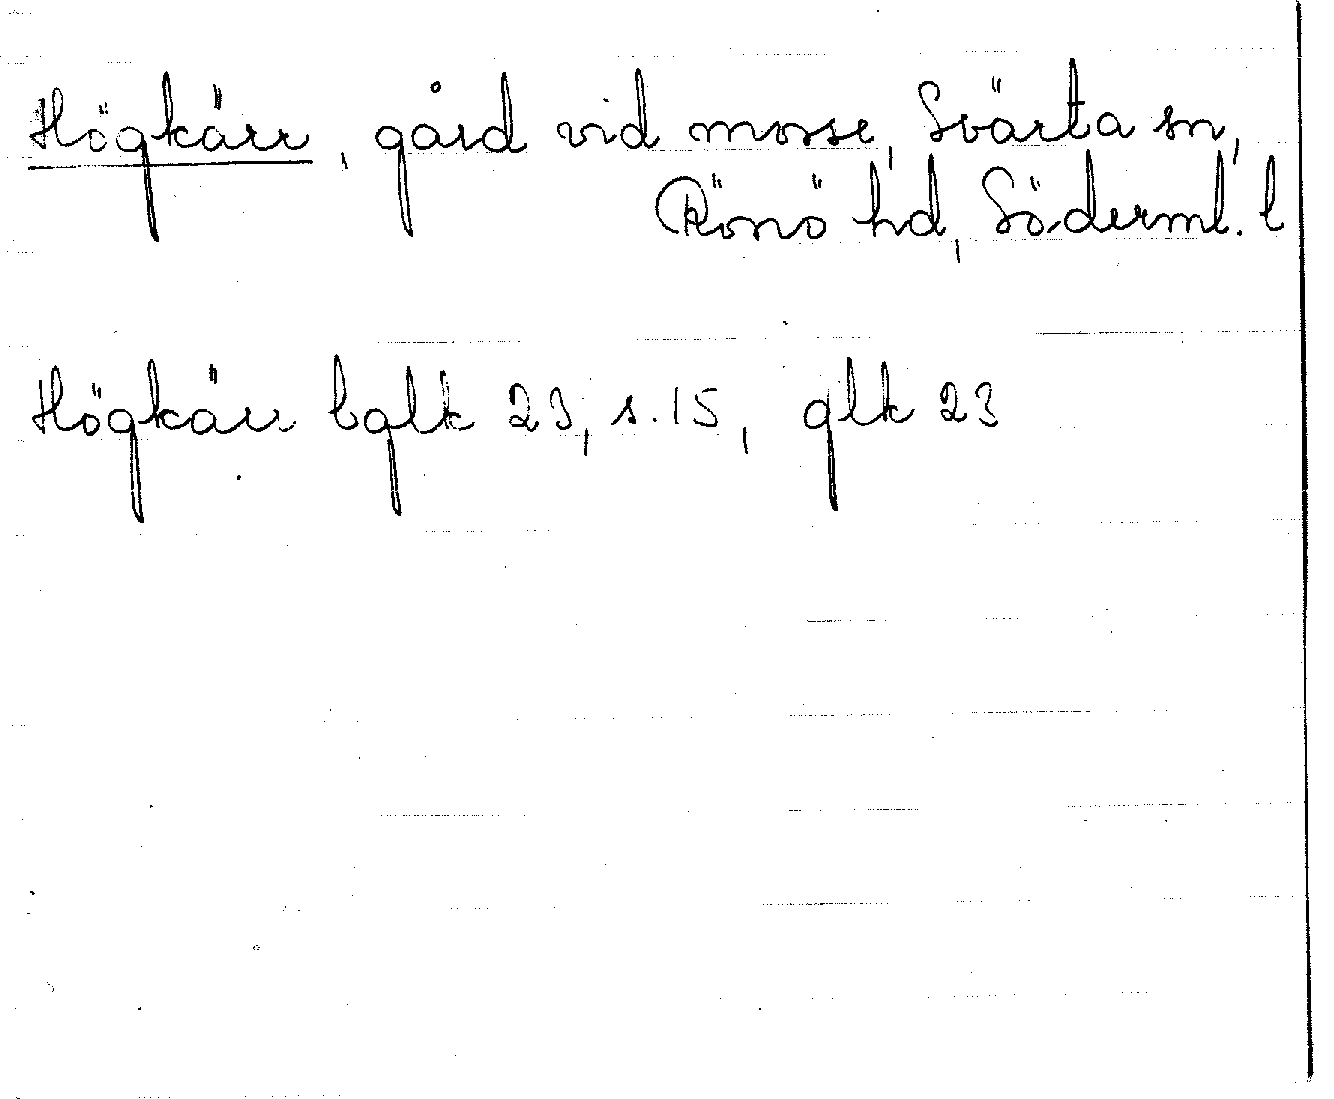 Högkärr, gård vid mosse, Svärta sn,
Rönö hd, Söderml. l
Högkärr bglk 23, s. 15, glk 23